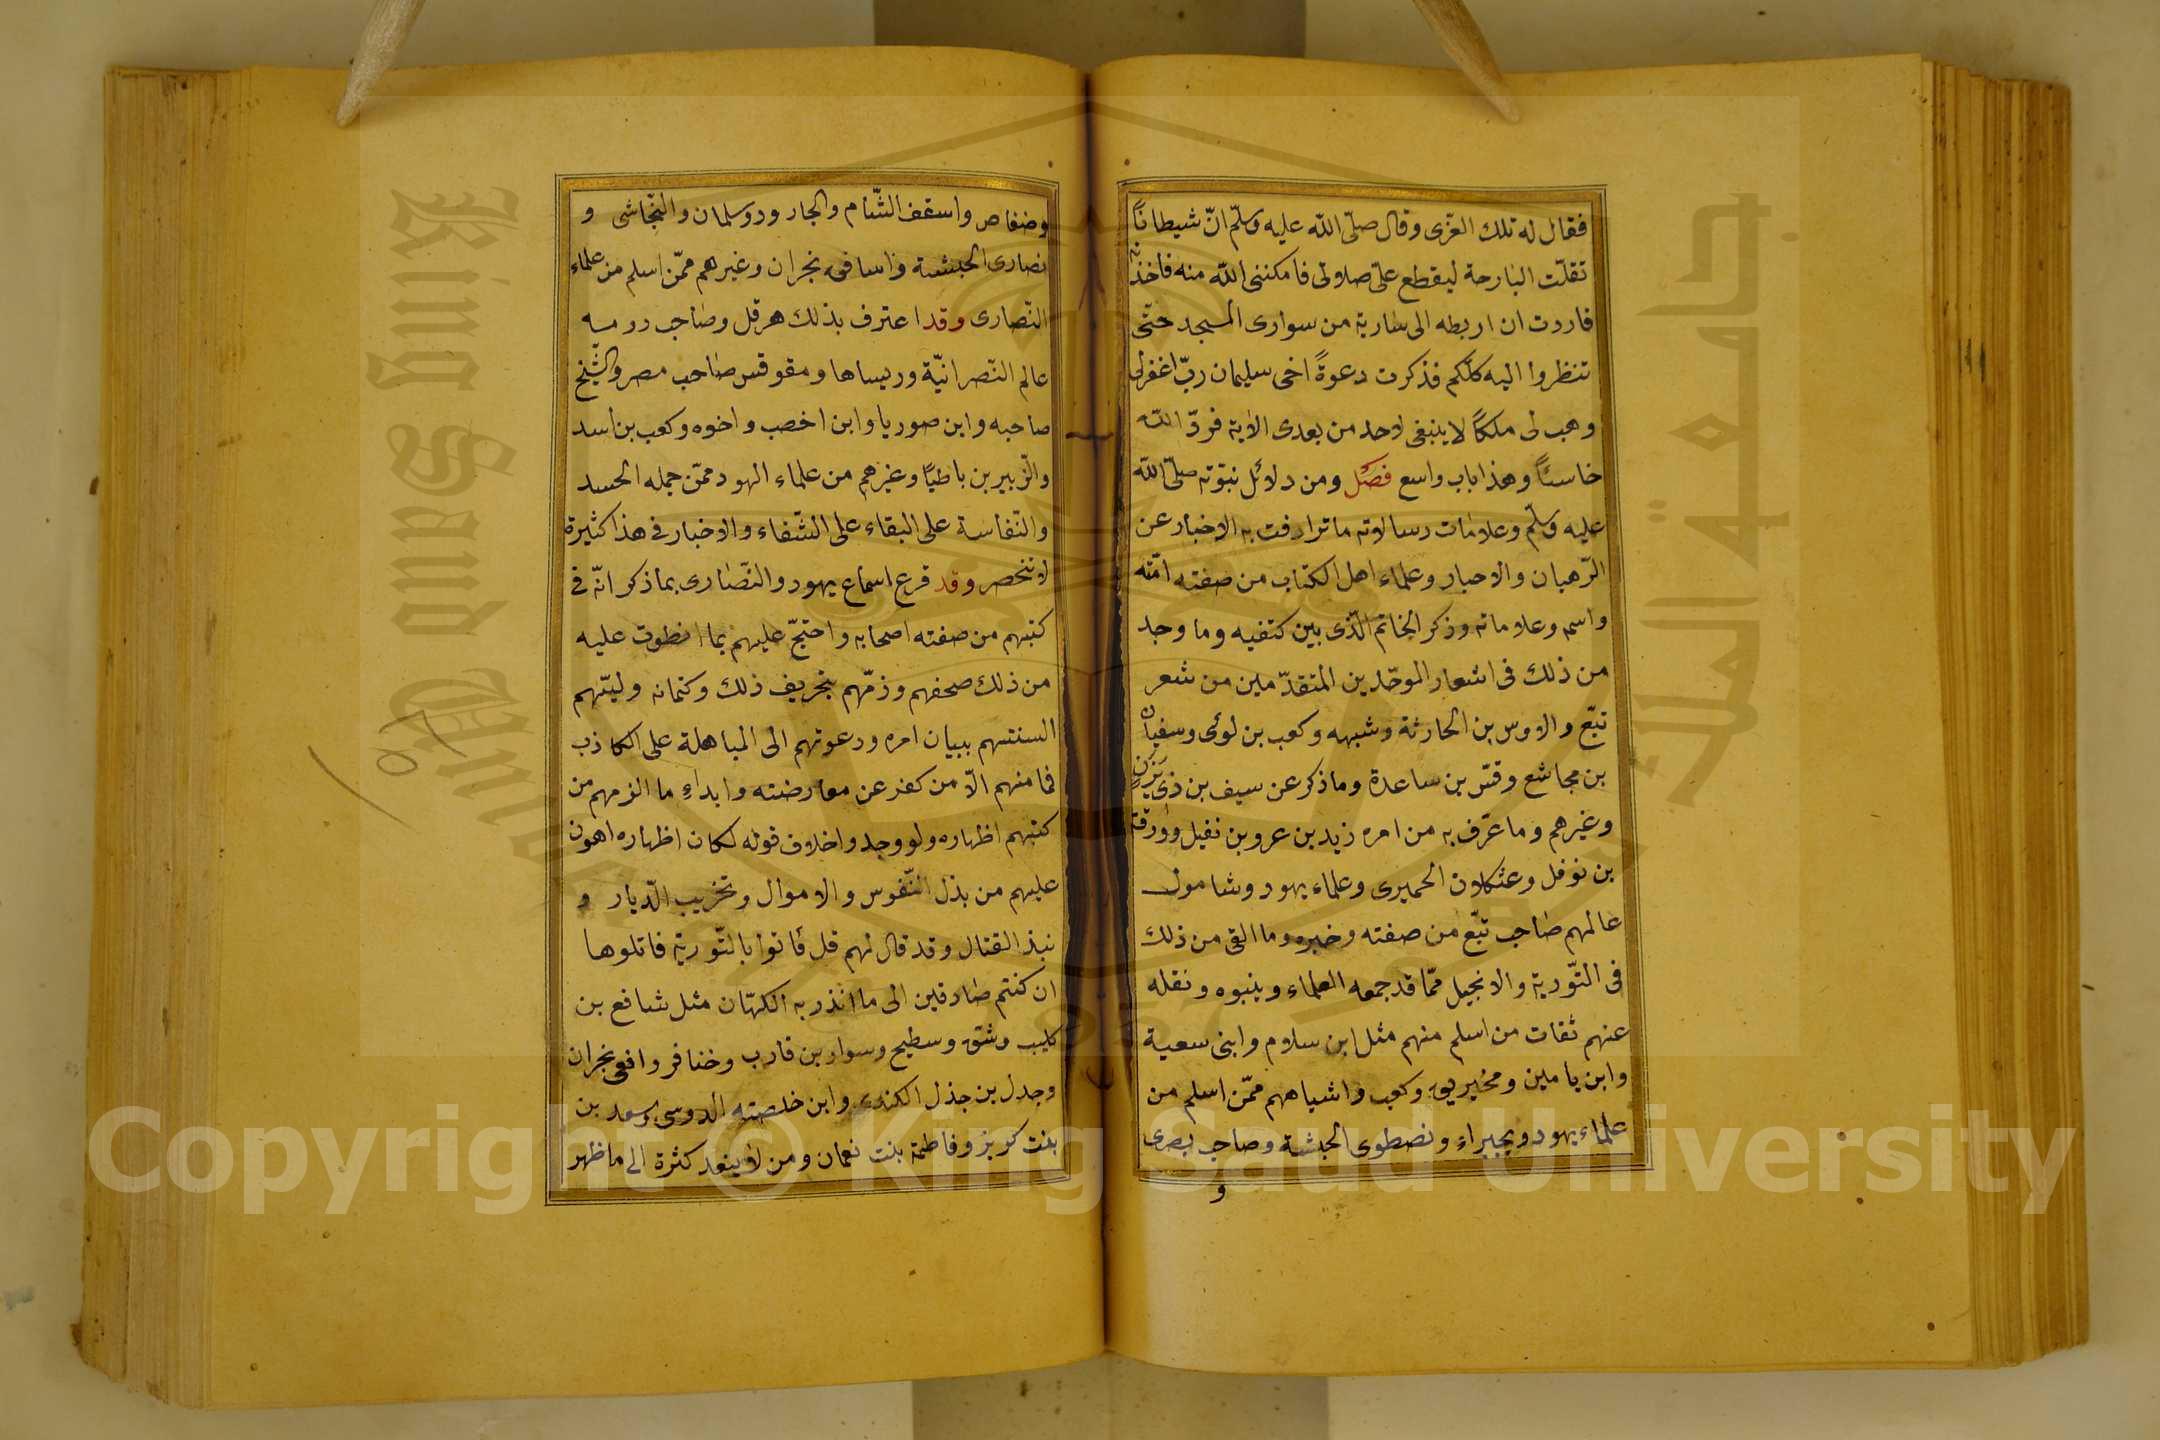 فقال له تلك العزى وقال صلّى الله عليه وسلّم انّ شيطانًا
تفلّت البارحة ليقطع علىّ صلاوتى فامكننى الله منه فاخذته
فاردت ان اربطه الى سارية من سوارى المسجد حتّى
تنظروا اليه كلكم فذكرت دعوةً اخى سليمان ربّ اغفرلى
وهب لى ملكًا لا ينبغى لاحد من بعدى الاية فردّ الله
خاسئًا وهذا باب واسع فصل ومن دلائل نبوّته صلّى الله
عليه وسلّم وعلامات رسالاته ماترادفت به الاخبار عن
الرّهبان والاحبار وعلماء اهل الكتاب من صفته امّته
واسمه وعلاماته وذكر الخاتم الّذى بين كتفيه وما وجد
من ذلك فى اشعار الموحّدين المتقدّمين من شعر
تبّع والاوس بن الحارثة وشبهه وكعب بن لوئى وسفيان
بن مجاشع وقسّ بن ساعدة وماذكر عن سيف بن ذى يزن
وغيرهم وما عرّف به من امره زيد بن عمرو بن نفيل وورقة
بن نوفل وعثكلان الحميرى وعلماء يهود وشامول
عالمهم صاحب تبّع من صفته وخبره وما القى من ذلك
فى التّورية والانجيل ممّا قد جمعه العلماء وينبوه ونقله
عنهم ثقات من اسلم منهم مثل ابن سلام وابنى سعية
وابن يامين ومخيريق وكعب واشياههم ممّن اسلم من
علماء يهود وبحيراء ونصطوى الحبشة وصاحب بصرى
و
وضغاص واسقف الشّام والجار ودوسلمان والنّجاشى و
نصارى الحبشة واساقف نجران وغيرهم ممّن اسلم من علماء
النّصارى وقد اعترف بذلك هرقل وصاحب رومه
عالم النّصرانيّة وريساها ومقوقس صاحب مصر والشّيخ
صاحبه وابن صوريا وابن اخصب واخوه وكعب بن اسد
والزّبير بن باطيًا وغيرهم من علماء الهود ممّن حمله الحسد
والنّفاسة على البقاء على الشّفاء والاخبار فى هذا كثيرة
لاتنحصر وقد قرع اسماع يهود والنّصارى بماذكر انّه فى
كتبهم من صفته اصحابه واحتجّ عليهم بما انطوت عليه
من ذلك صحفهم وذمّهم بتحريف ذلك وكتمانه وليّهم
السنتهم ببيان امره ودعوتهم الى المباهلة على الكاذب
فما منهم الّا من كفر عن معارضته وابداء ما الزمهم من
كتبهم اظهاره ولو وجدوا خلاف قوله لكان اظهاره اهون
عليهم من بذل النّفوس والاموال وتخريب الدّيار و
نبذ القتال وقد قال لهم قل فأتوا بالتّورية فاتلوها
ان كنتم صادقين الى ما انذر به الكهّان مثل شافع بن
كليب وشق وسطيح وسواد بن قارب وخنافر وافعى نجران
وجدل بن جذل الكندى وابن خلصته الدوسى وسعد بن
بنت كريز وفاطمة بنت نعمان ومن لا ينعد كثرة الى ما ظهر
Copyright © King Saud University
King Saud University
جامعة الملك